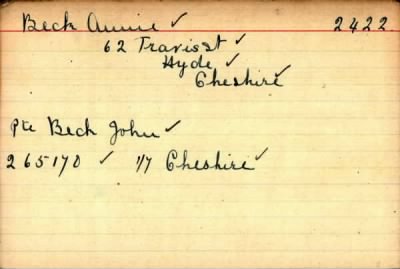 Beck Annie ✓ 2422.
62 Travis St ✓
Hyde ✓
Cheshire ✓
Pte Beck John ✓
265170 ✓ 1/7 Cheshire ✓